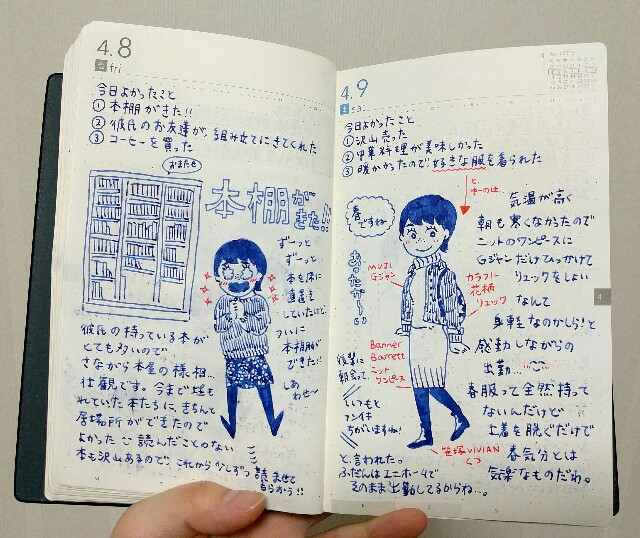 4.8
金 fri
今日よかったこと
① 本棚がきた!!
② 彼氏のお友達が、組み立てにきてくれた
③ コーヒーを買った
おまたせ
本棚が
きた!!
ずーっと
ずーっと
本を床に
直置き
していたけど
ついに
本棚が
できた!!
しあ
わせ〜
彼氏の持っている本が
とても多いので
さながら本屋の様相…
壮観です。今まで埋も
れていた本たちに、きちんと
居場所ができたので
よかった 読んだことのない
本も沢山あるので、これから少しずつ読ませて
もらおう!!
4.9
土 sat
今日よかったこと
① 沢山売った
② 中華料理が美味しかった
③ 暖かかったので好きな服を着られた
と
ゆーのは…
春ですね
あったか〜い。
MUJI
Gジャン
カラフルに
花柄
リュック
Banner
Barrett
ニット
ワンピース
笹塚VIVIAN
くつ
気温が高く
朝も寒くなかったので
ニットのワンピースに
Gジャンだけひっかけて
リュックをしょい
なんて
身軽なのかしら!と
感動しながらの
出勤…
春服って全然持って
ないんだけど
上着を脱ぐだけで
春気分とは
気楽なものだわ。
後輩に
朝会って
いつもと
フンイキ
ちがいますね!
と、言われた。
ふだんはユニホームで
そのまま出勤してるからね…。
4